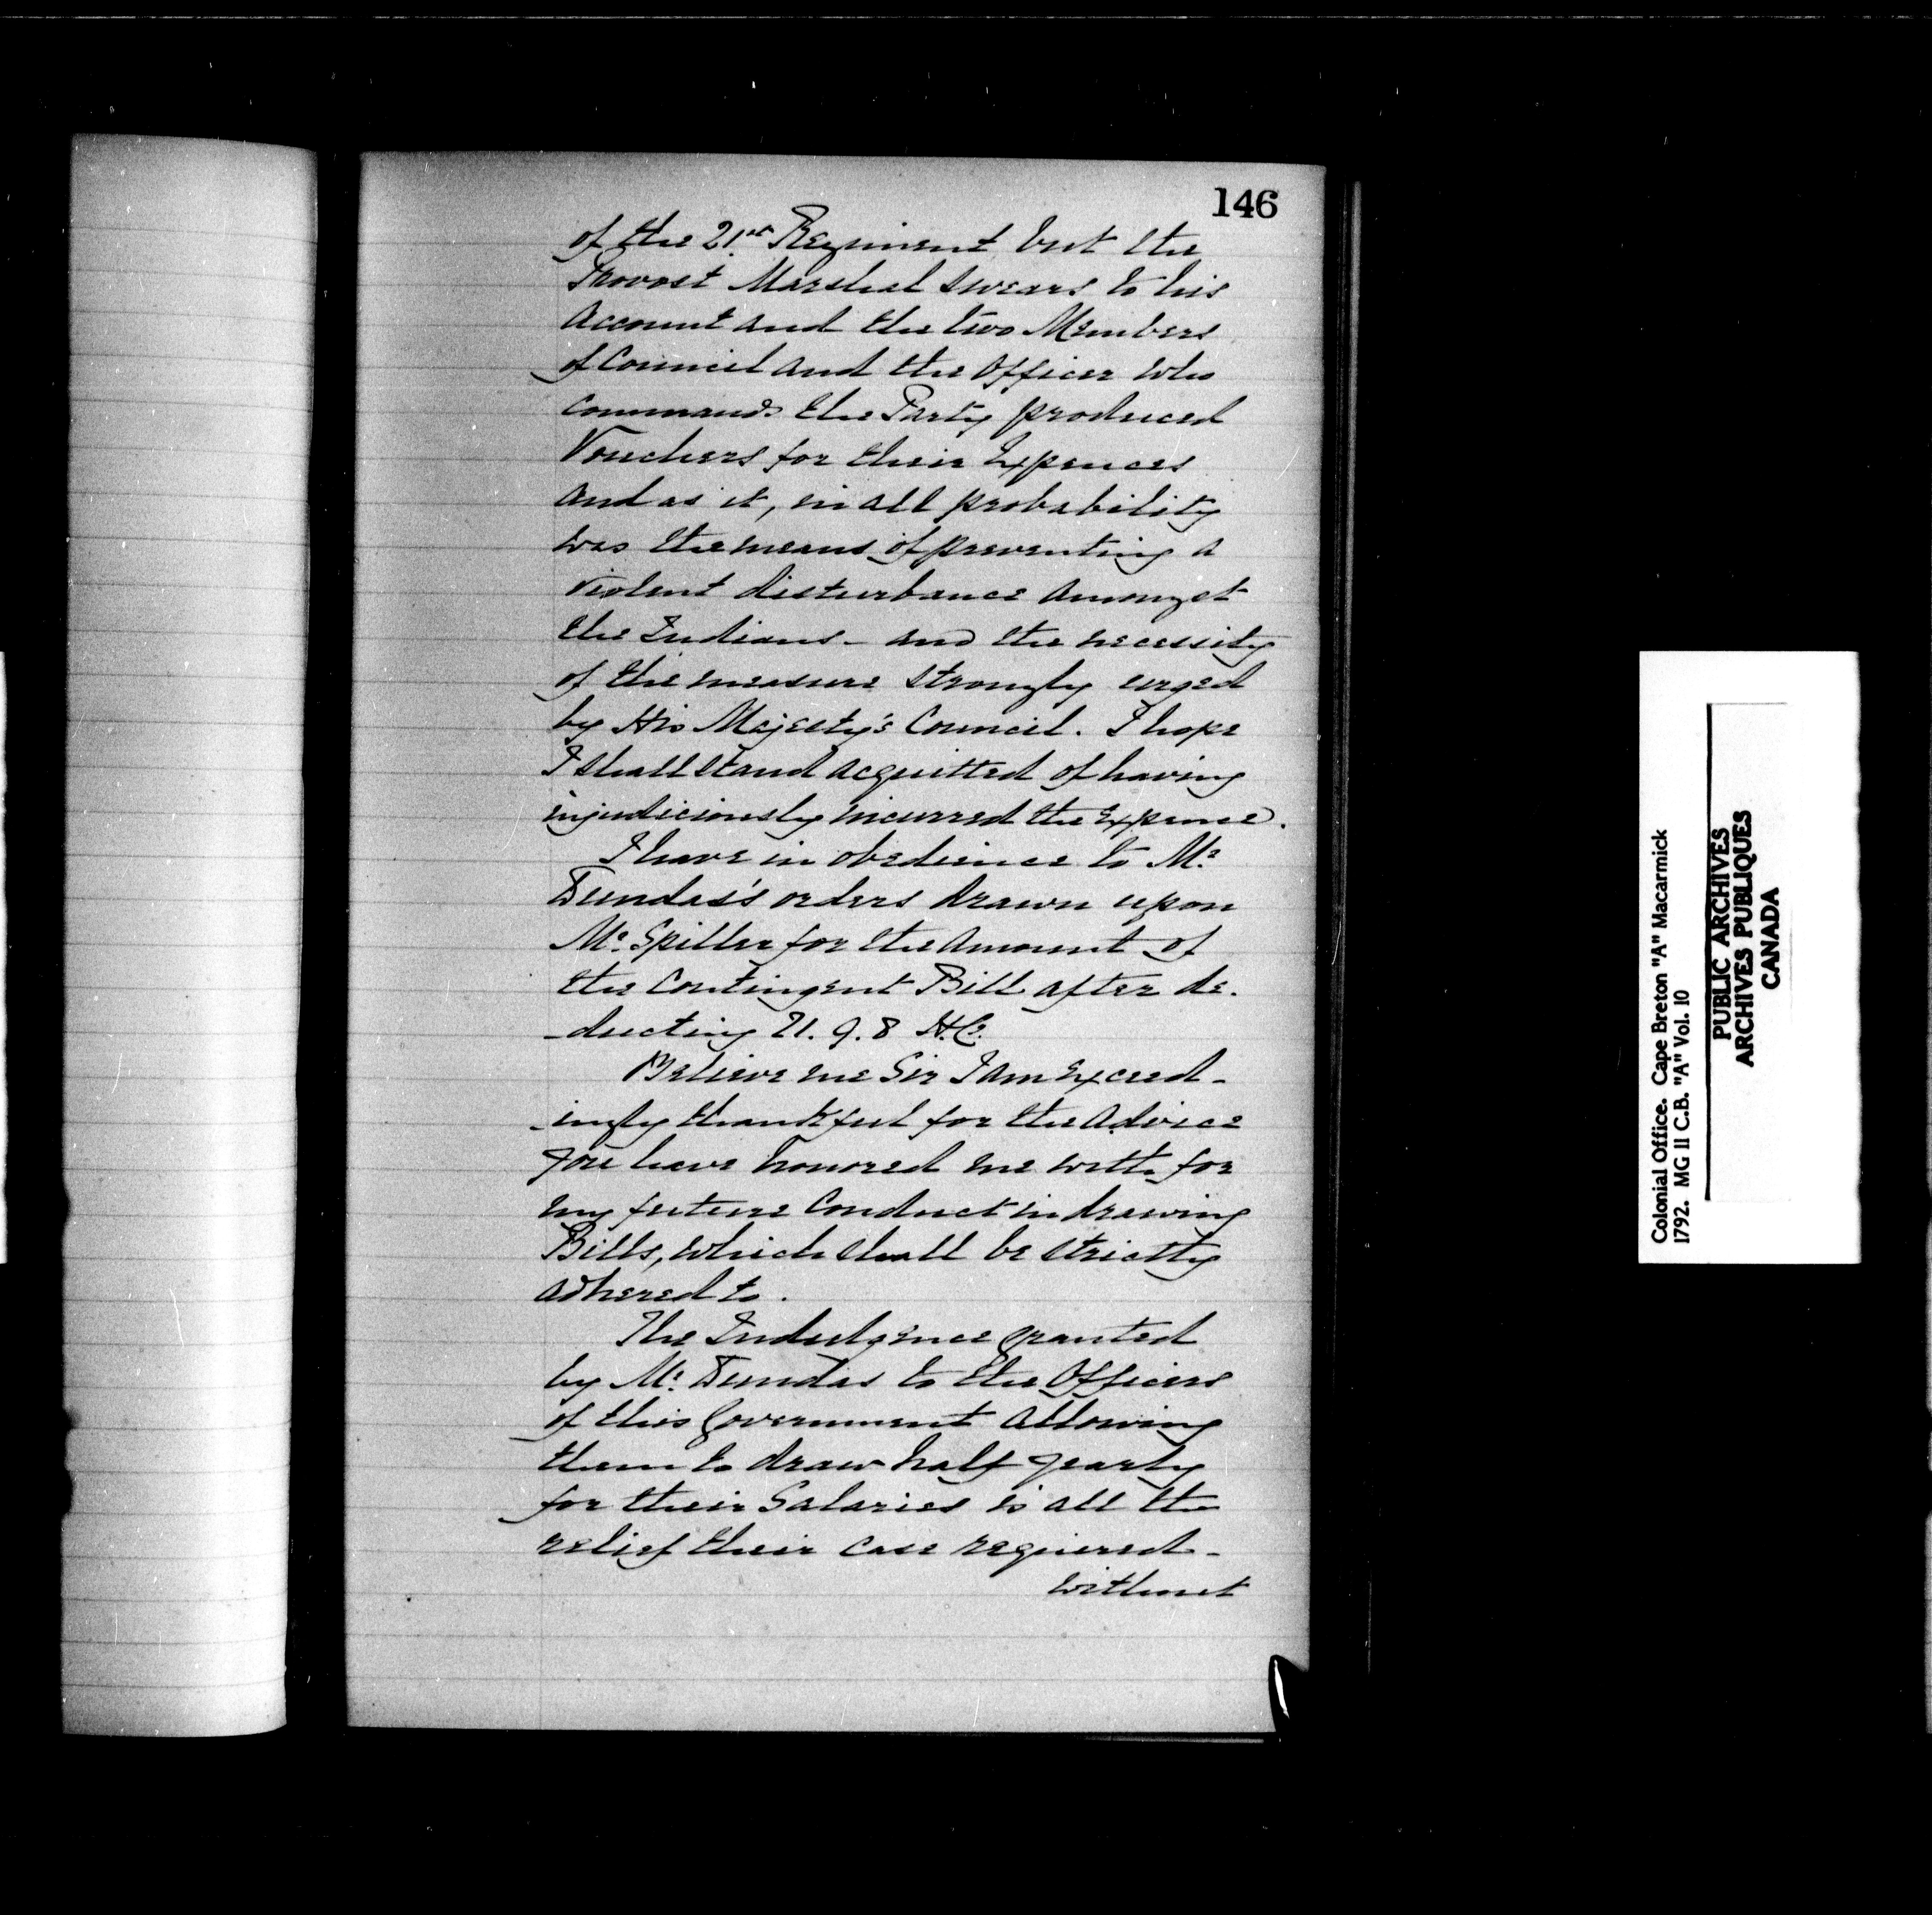 146
of the 21st Regiment, but the
Provost Marshal swears to his
Account and the two Members
of Council and the Officer who
commands the Party produced
Vouchers for their Expences
and as it, in all probability
was the means of preventing a
violent disturbance amongst
the Indians - and the necessity
of the measure strongly urged
by His Majesty's Council. I hope
I shall stand acquitted of having
injudiciously incurred the Expence.
I have in obedience to Mr.
Dundas's orders drawn upon
Mr. Spiller for the Amount of
the Contingent Bill after de-
-ducting 21. 9. 8 H.C.
Believe me Sir I am Exceed-
-ingly thankful for the Advice
you have honored me with for
my future Conduct in drawing
Bills, which shall be strictly
adhered to.
The Indulgence granted
by Mr. Dundas to the Officers
of this Government allowing
them to draw half yearly
for their Salaries is all the
relief their case required -
without
Colonial Office. Cape Breton "A" Macarmick
1792. MG 11 C.B. "A" Vol. 10
PUBLIC ARCHIVES
ARCHIVES PUBLIQUES
CANADA